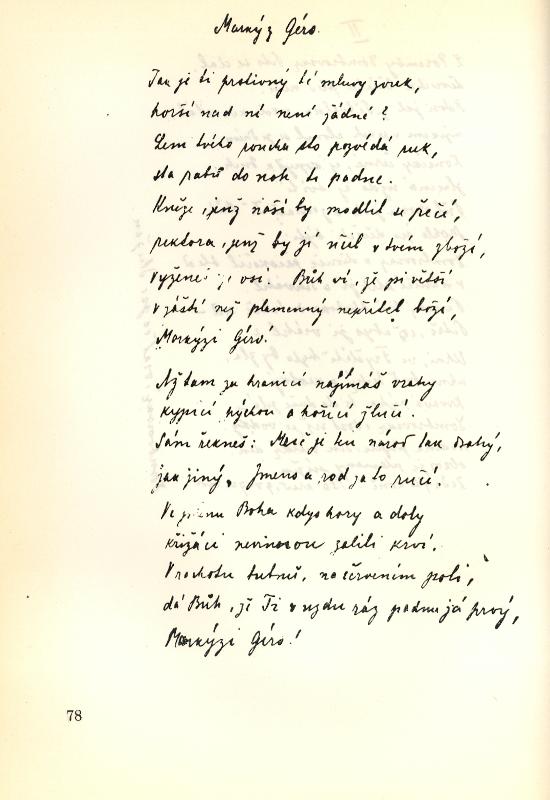 Markýz Géro.
Jak je ti protivný té mluvy zvuk,
horší nad ní není žádné?
Lem tvého roucha sto pozvédá ruk,
sta rabů do noh ti padne.
Kněze, jenž naší by modlil se řečí,
rektora, jenž by jí učil v tvém zboží,
vyženeš ze vsí. Bůh ví, že
v zášti než plamenný nepřítel boží,
Markýzi Géro!
Až tam za hranicí najímáš vrahy
kypící pýchou a hořící žlučí.
Sám řekneš: tu národ tak drahý,
jak jiný, Jmeno a rod za to ručí.
Ve jménu Boha kdys hory a doly
křižáci nevinnou zalili krví.
V rachotu bubnů, na červeném poli,
dá Bůh, že Ti v uzdu ráz padnu já prvý,
Markýzi Géro!
78